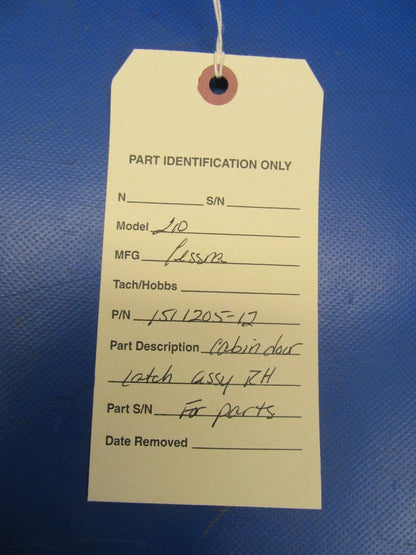 PART IDENTIFICATION ONLY
N S/N
Model 210
MFG Cessna
Tach/Hobbs
P/N 1511205-12
Part Description Cabin door
Latch assy RH
Part S/N For parts
Date Removed